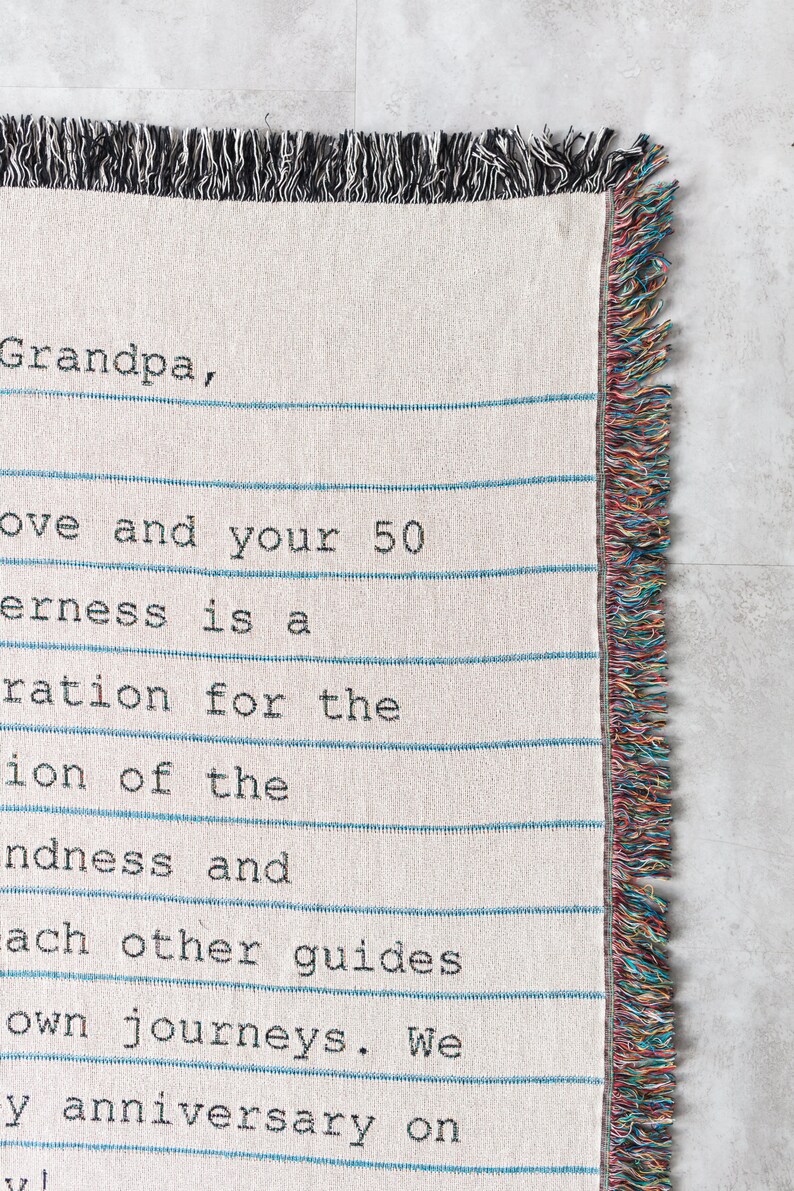 Grandpa,
ove and your 50
erness is a
ration for the
ion of the
ndness and
each other guides
own journeys. We
y anniversary on
y!